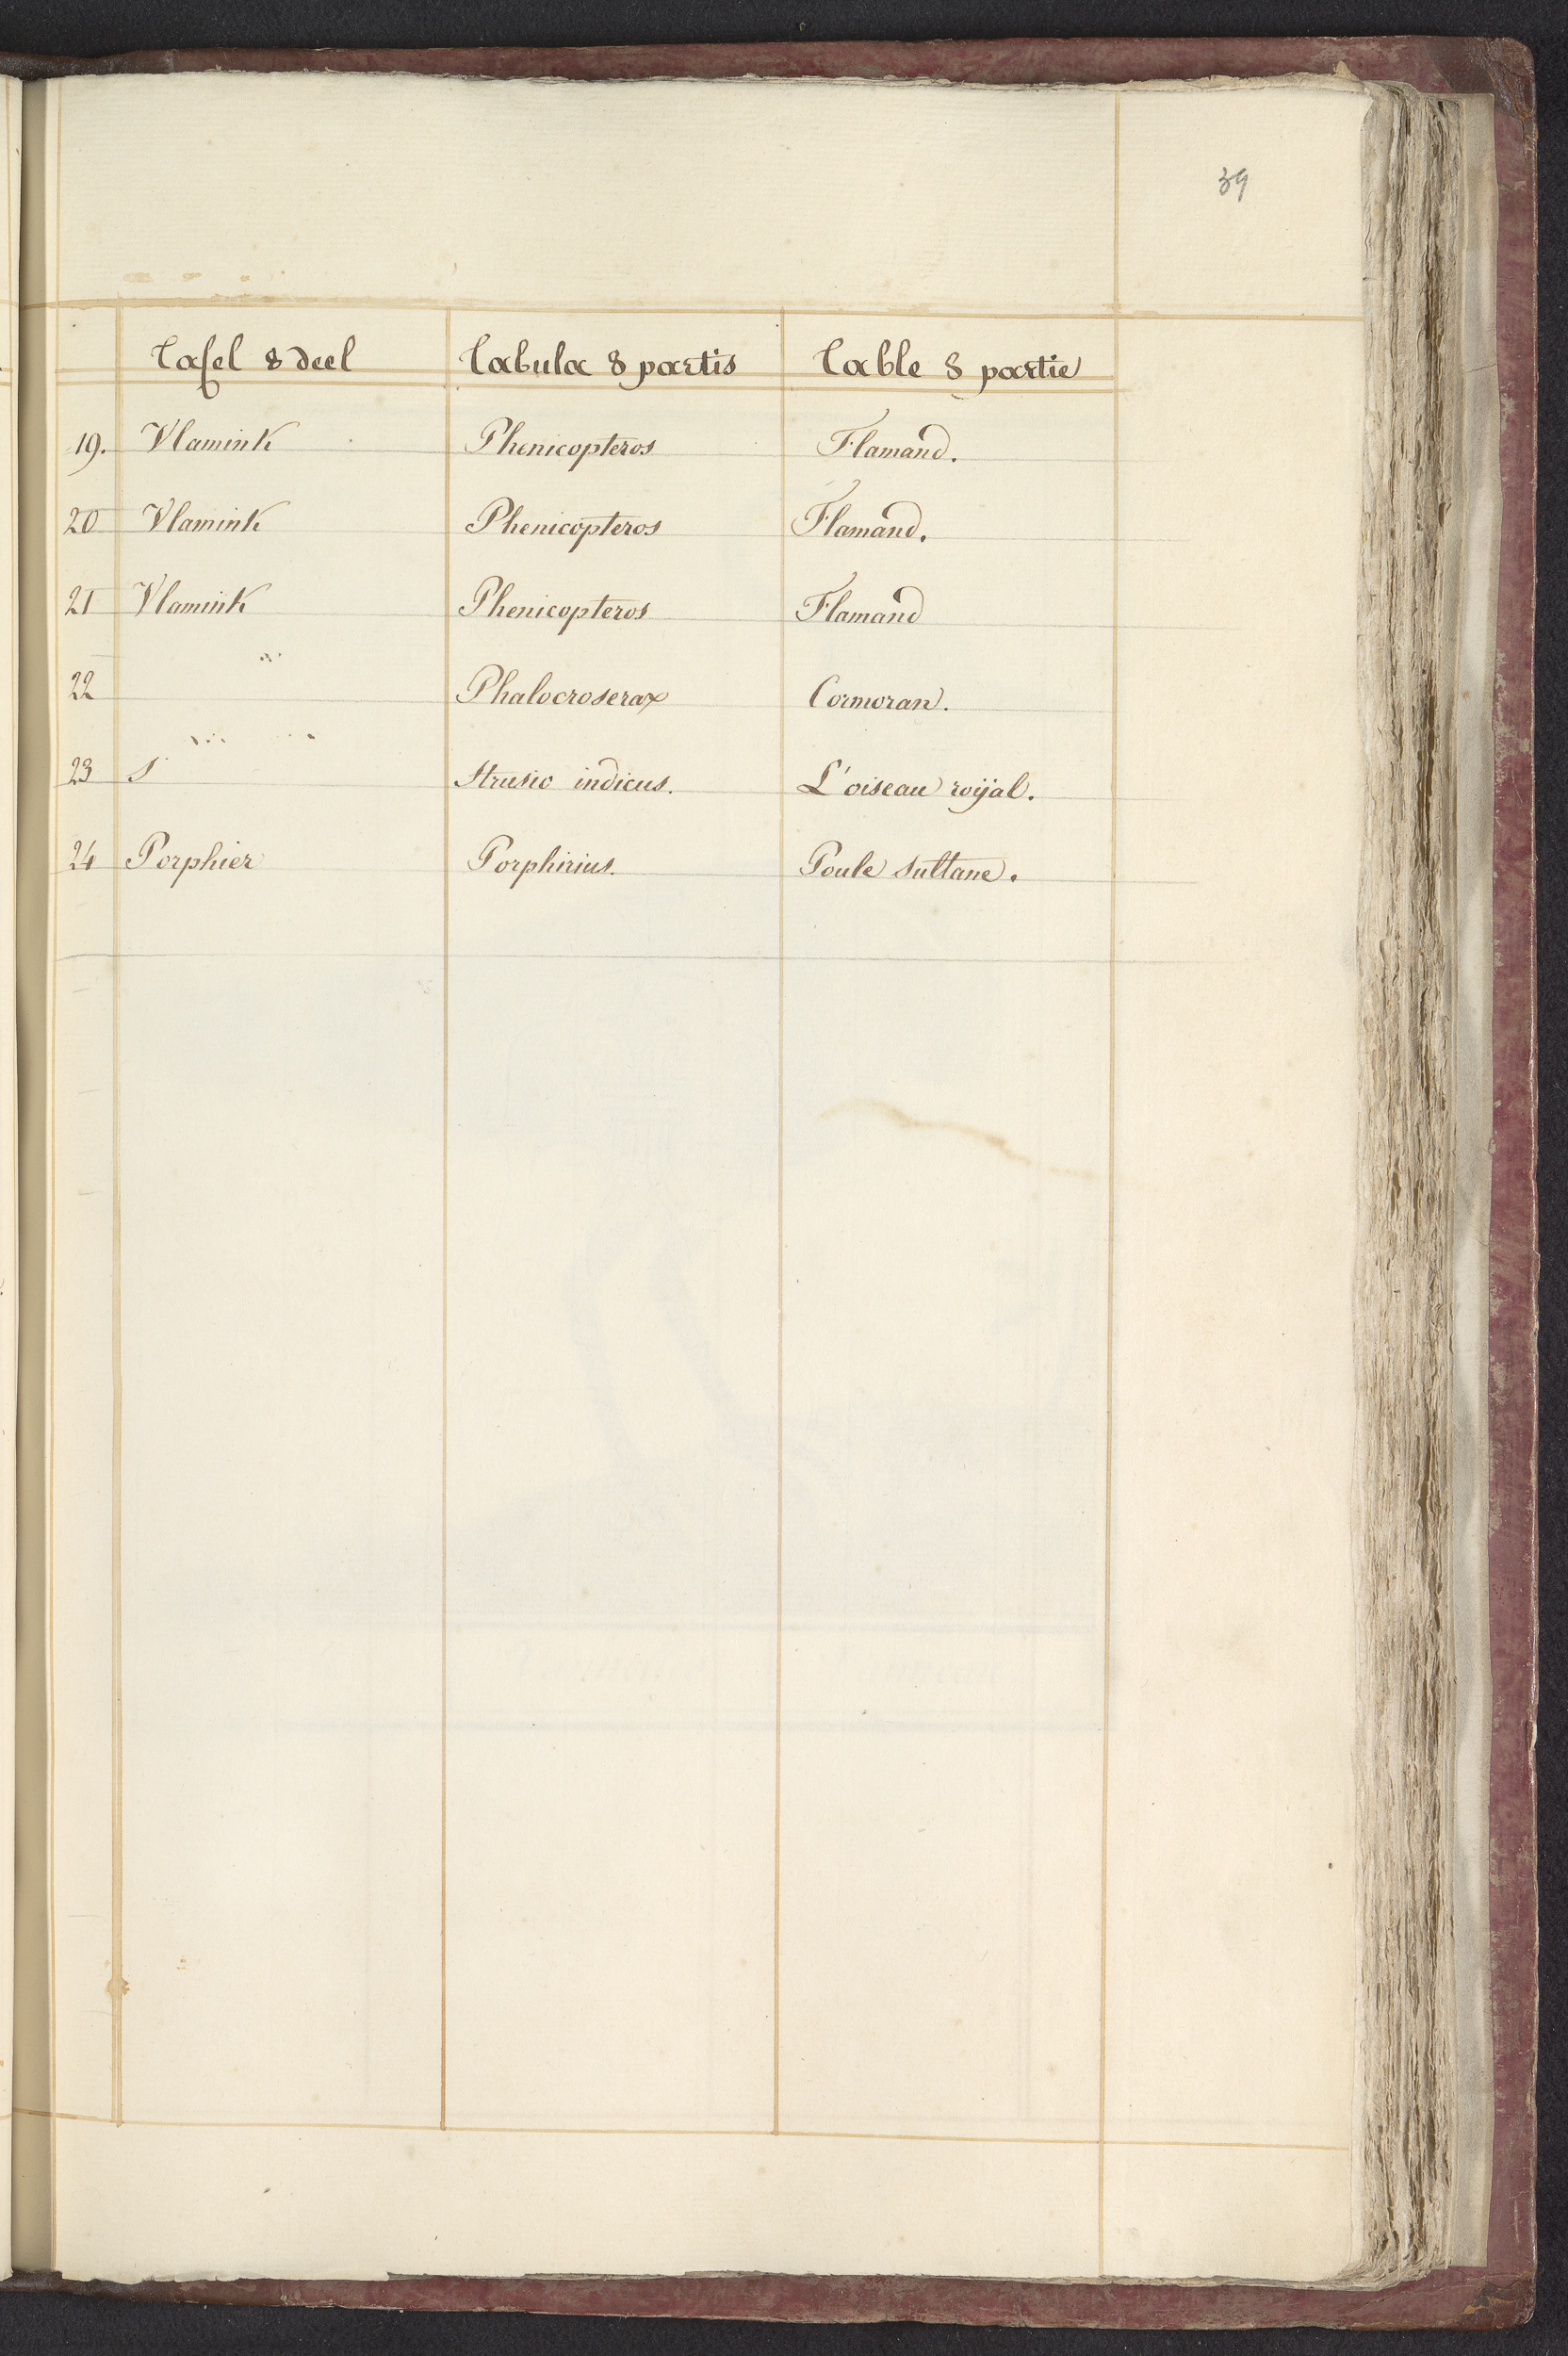 39
Tafel 8 deel Tabula 8 partis Table 8 partie
19. Vlamink Phenicopteros Flamand.
20 Vlamink Phenicopteros Flamand.
21 Vlamink Phenicopteros Flamand
22 Phalocroserax Cormoran.
23 S Strusio indicus. L'oiseau roÿal.
24 Porphier Porphirius. Poule Sultane.